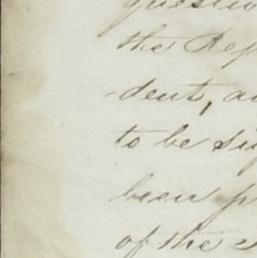 the Rep
-dent, a
to be si
been p
of the e